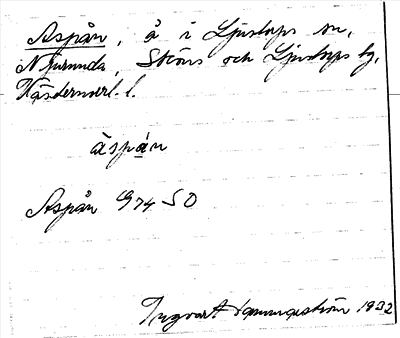 Aspån, å i Ljustorps sn,
Njurunda, Sköns och Ljustorps tg,
Västernorrl. l.
àspån
Aspån G74 SO
Ingvart 1932